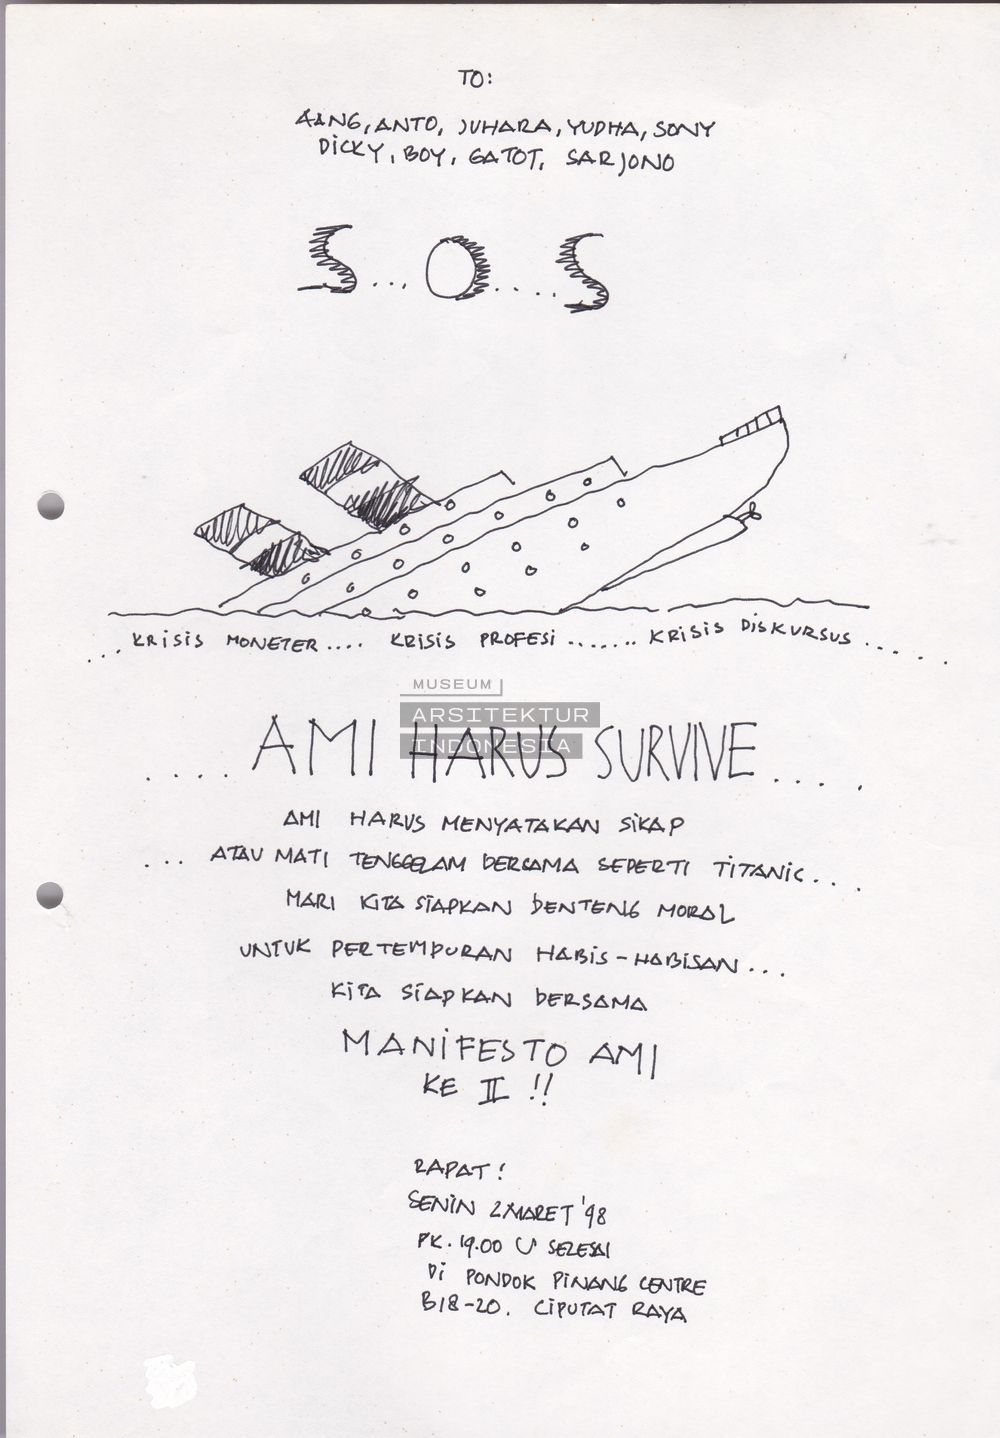 TO:
AANG, ANTO, JUHARA, YUDHA, SONY
DICKY, BOY, GATOT, SARJONO
S...O....S
... KRISIS MONETER.... KRISIS PROFESI ....... KRISIS DISKURSUS .....
MUSEUM
ARSITEKTUR
INDONESIA
.... AMI HARUS SURVIVE ....
AMI HARUS MENYATAKAN SIKAP
... ATAU MATI TENGGELAM BERSAMA SEPERTI TITANIC....
MARI KITA SIAPKAN BENTENG MORAL
UNTUK PERTEMPURAN HABIS-HABISAN...
KITA SIAPKAN BERSAMA
MANIFESTO AMI
KE II !!
RAPAT!
SENIN 2 MARET '98
PK. 19.00 SELESAI
DI PONDOK PINANG CENTRE
B18-20. CIPUTAT RAYA